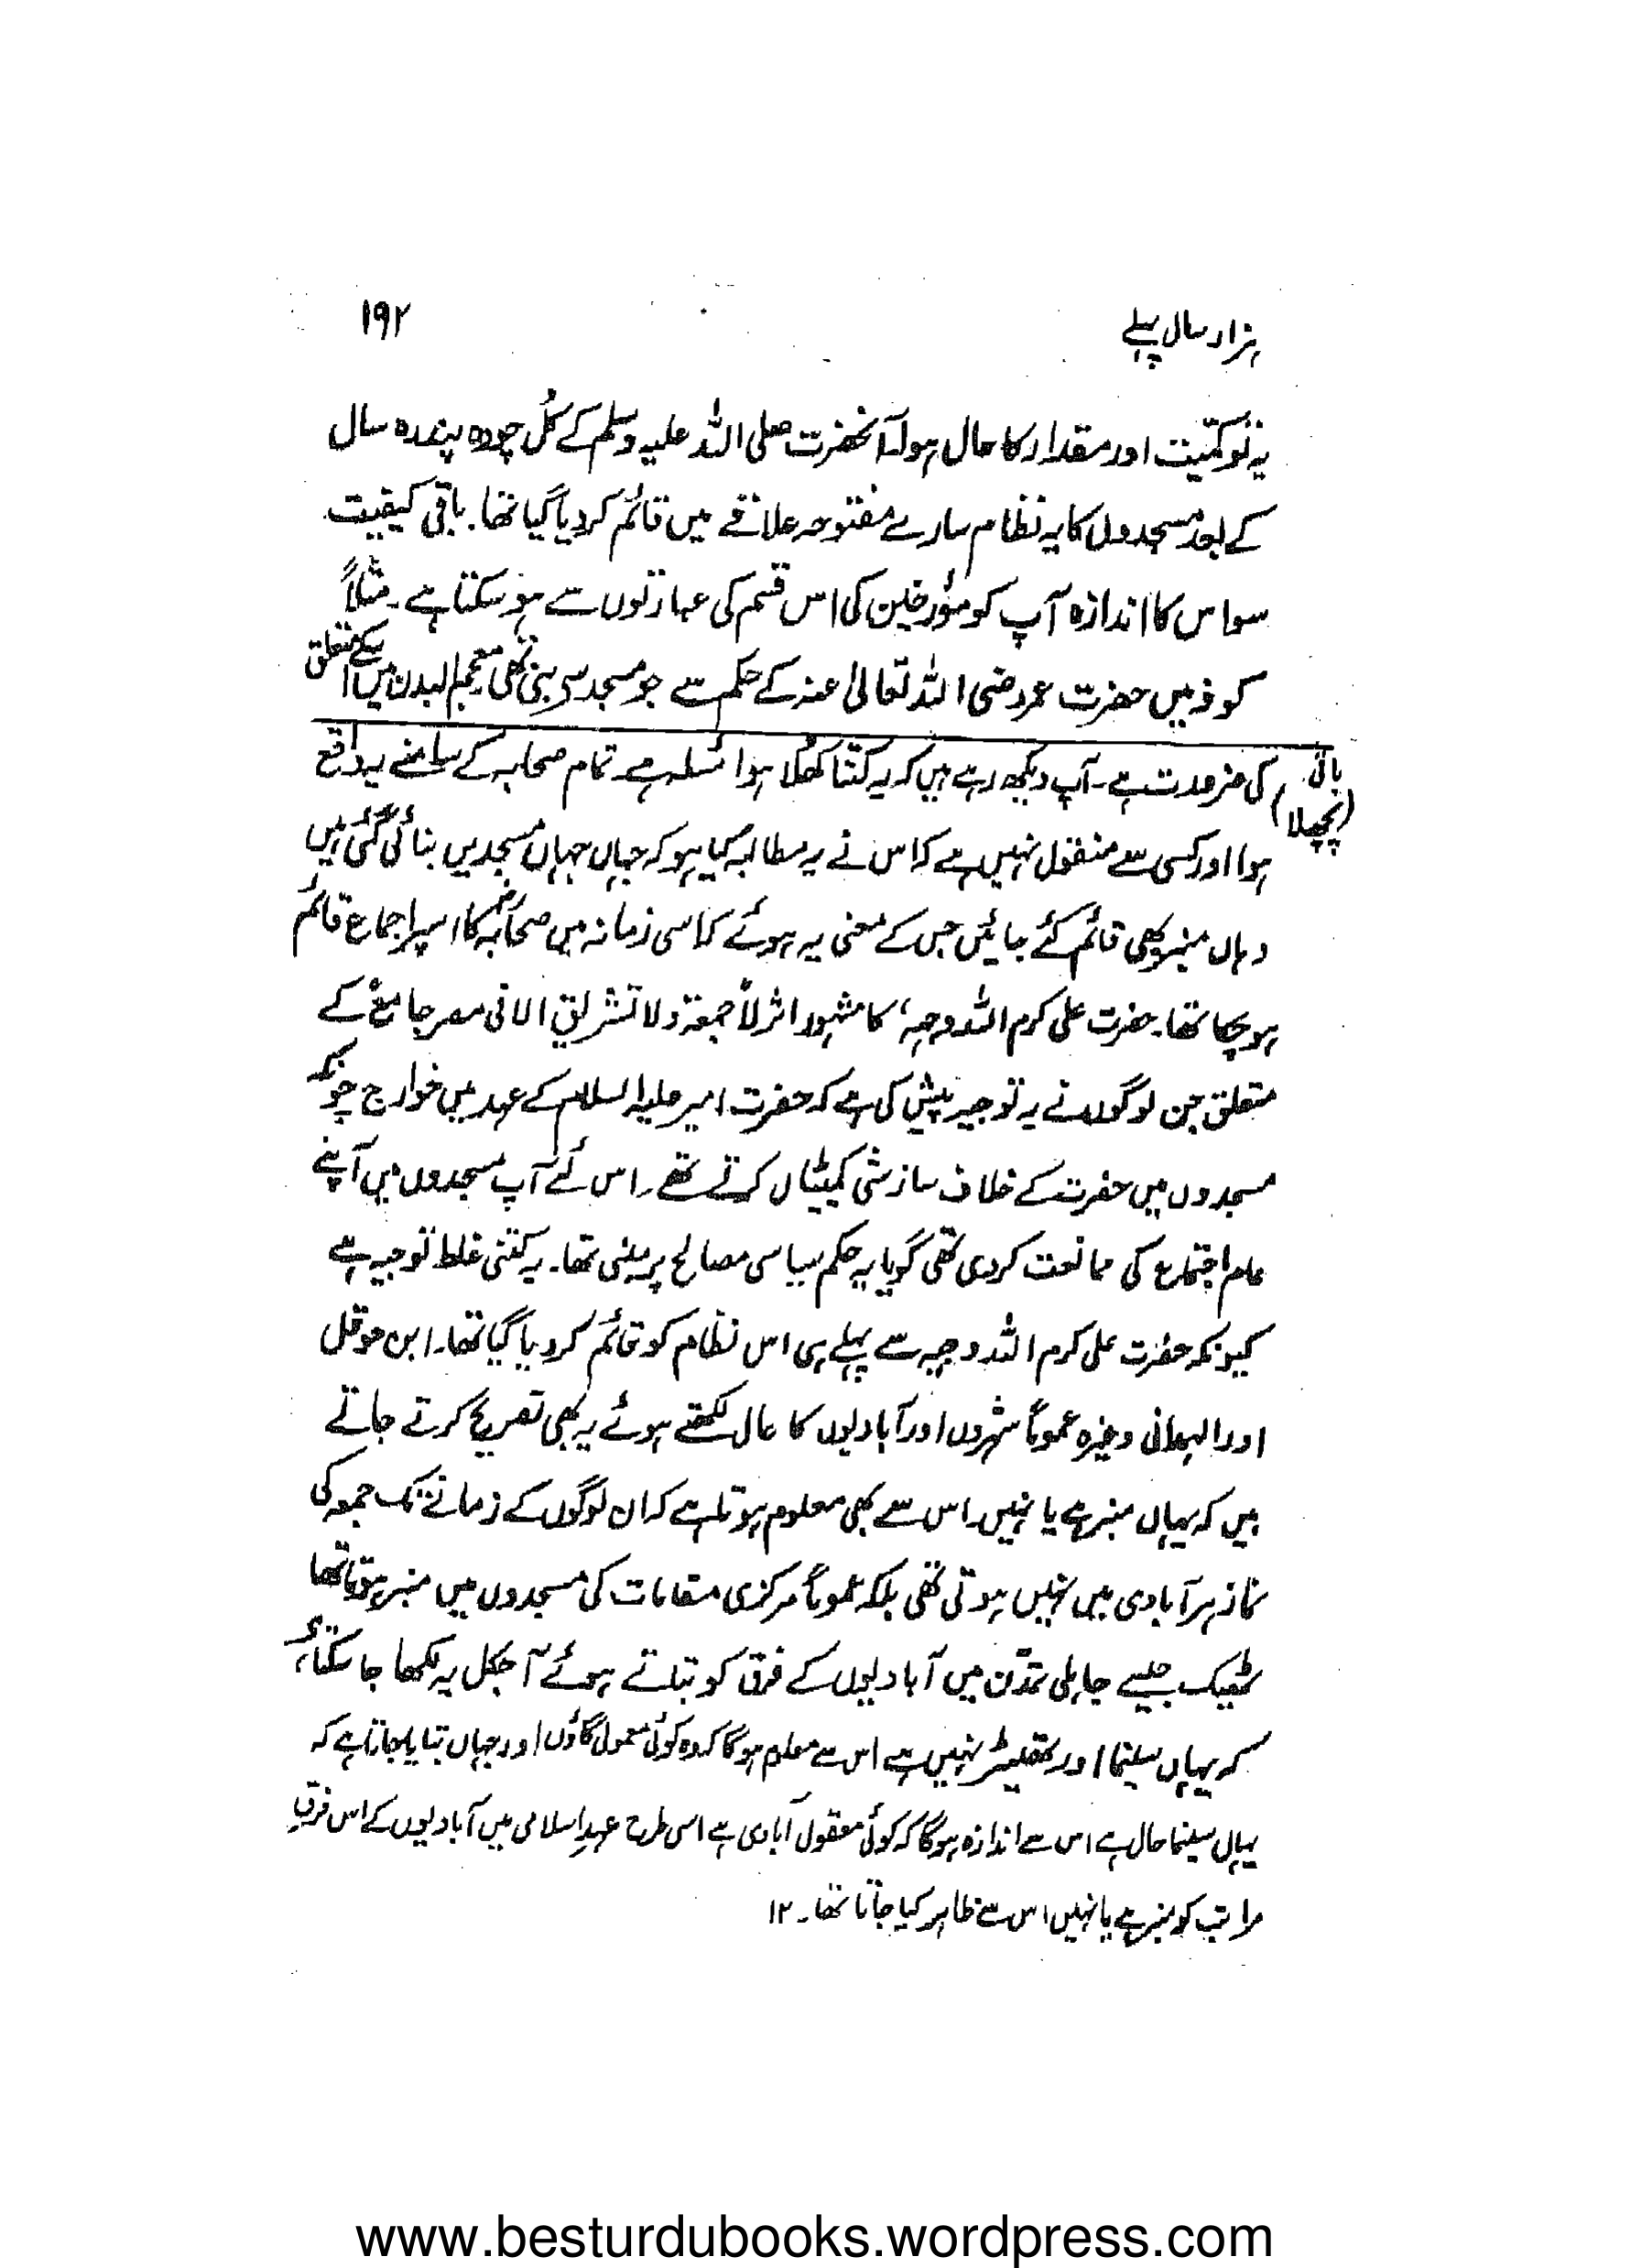 ہزار سال پہلے
۱۹۲
یہ تو کمّیت اور مقدار کا حال ہوا۔ آنحضرت صلی اللہ علیہ وسلم کے کُل چودہ پندرہ سال
کے بعد مسجدوں کا یہ نظام سارے مفتوحہ علاقے میں قائم کر دیا گیا تھا۔ باقی کیفیت
سو اس کا اندازہ آپ کو مؤرخین کی اس قسم کی عبارتوں سے ہو سکتا ہے۔ مثلاً
کوفہ میں حضرت عمر رضی اللہ تعالیٰ عنہ کے حکم سے جو مسجد بنی تھی معجم البلدان میں اسکے متعلق
باقی (پچھلا) کی ضرورت ہے۔ آپ دیکھ رہے ہیں کہ یہ کتنا کھُلا ہوا مسئلہ ہے۔ تمام صحابہ کے سامنے یہ واقع
ہوا اور کسی سے منقول نہیں ہے کہ اس نے یہ مطالبہ کیا ہو کہ جہاں جہاں مسجدیں بنائی گئی ہیں
وہاں منبر بھی قائم کئے جائیں جس کے معنی یہ ہوئے کہ اسی زمانہ میں صحابہؓ کا اسپر اجماع قائم
ہو چکا تھا۔ حضرت علی کرم اللہ وجہہ، کا مشہور اثر لا جمعۃ ولا تشریق الا فی مصر جامع کے
متعلق جن لوگوں نے یہ توجیہ پیش کی ہے کہ حضرت امیر علیہ السلام کے عہد میں خوارج چونکہ
مسجدوں میں حضرت کے خلاف سازشی کمیٹیاں کرتے تھے۔ اس لئے آپ مسجدوں میں آپنے
عام اجتماع کی ممانعت کر دی تھی گویا یہ حکم سیاسی مصالح پر مبنی تھا۔ یہ کتنی غلط توجیہ ہے
کیونکہ حضرت علی کرم اللہ وجہہ سے پہلے ہی اس نظام کو قائم کر دیا گیا تھا۔ ابن حوقل
اور الہمدانی وغیرہ عموماً شہروں اور آبادیوں کا حال لکھتے ہوئے یہ بھی تصریح کرتے جاتے
ہیں کہ یہاں منبر ہے یا نہیں۔ اس سے بھی معلوم ہوتا ہے کہ ان لوگوں کے زمانے تک جمعہ کی
نماز ہر آبادی میں نہیں ہوتی تھی بلکہ عموماً مرکزی مقامات کی مسجدوں میں منبر ہوتا تھا
ٹھیک جیسے جاہلی تمدّن میں آبادیوں کے فرق کو بتلاتے ہوئے آجکل یہ لکھا جا سکتا ہے
کہ یہاں سینما اور تھیٹر نہیں ہے اس سے معلوم ہوگا کہ وہ کوئی معمولی گاؤں اور جہاں بتایا جاتا ہے کہ
یہاں سینما حال ہے اس سے اندازہ ہوگا کہ کوئی معقول آبادی ہے اسی طرح عہدِ اسلامی میں آبادیوں کے اس فرقِ
مراتب کو منبر ہے یا نہیں، اس سے ظاہر کیا جاتا تھا۔ ۱۲
www.besturdubooks.wordpress.com